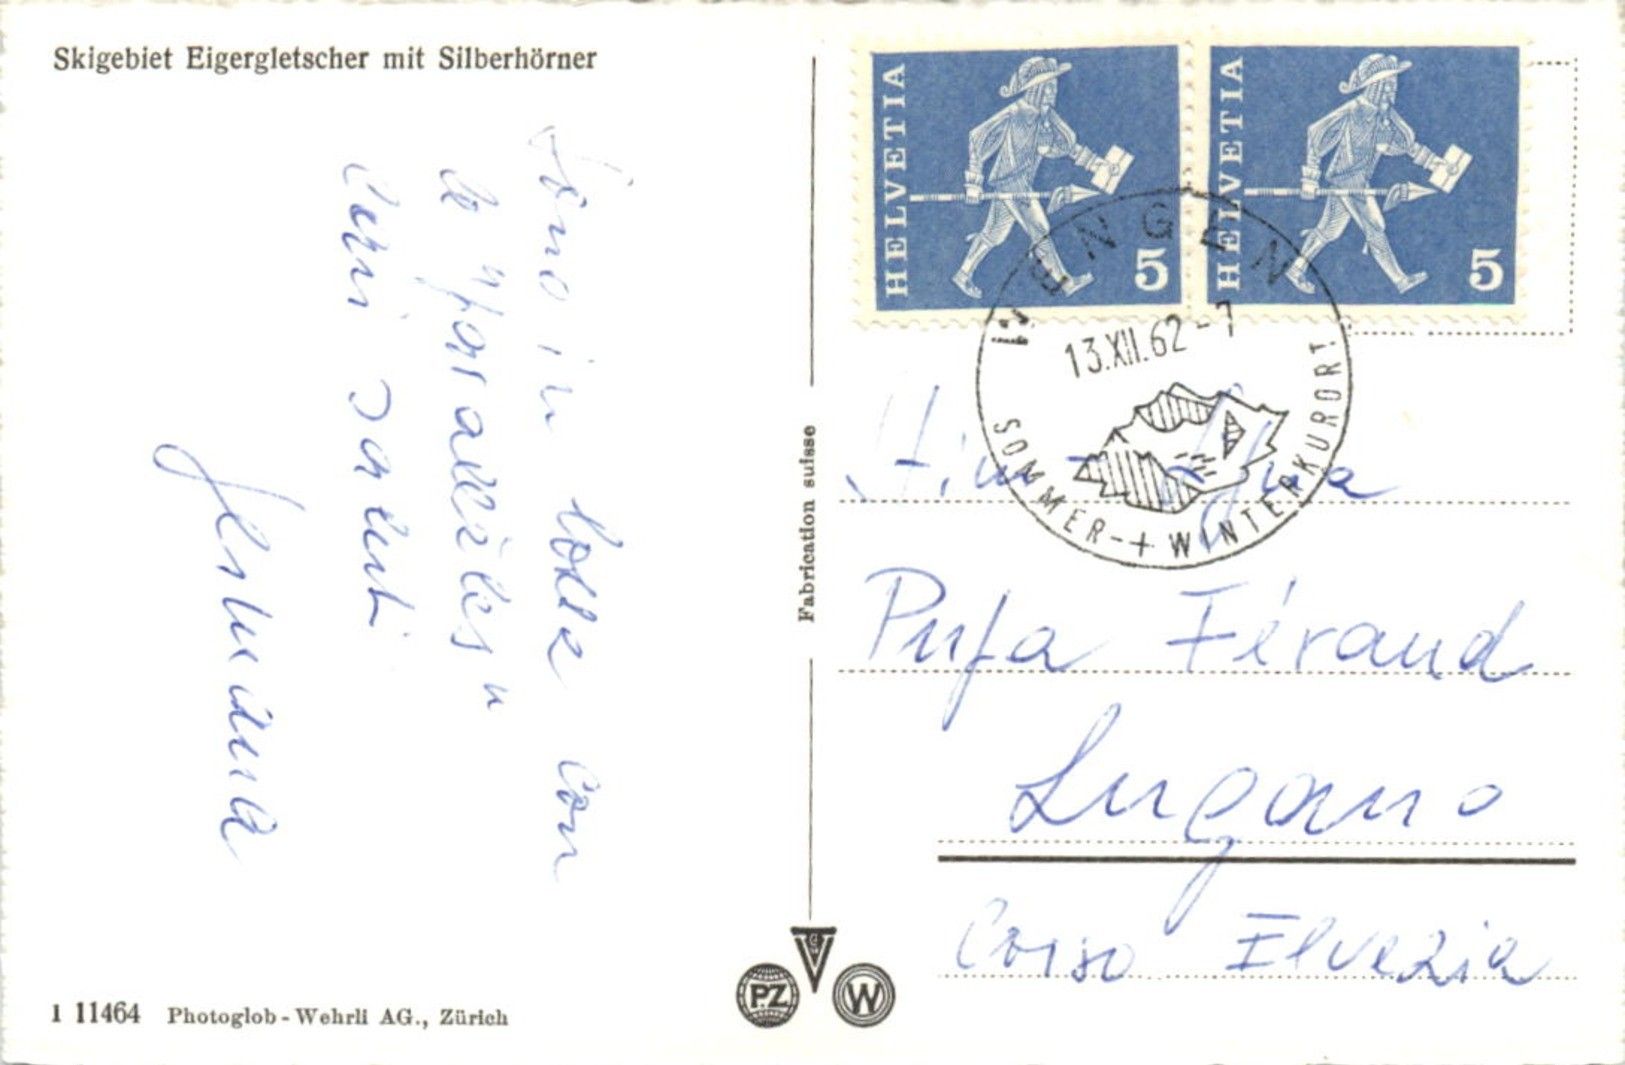 Skigebiet Eigergletscher mit Silberhörner
Sono in lotta con
le "parallèles"
Cari saluti
Germana
Fabrication suisse
1 11464 Photoglob-Wehrli AG., Zürich
PZ
W
HELVETIA 5
HELVETIA 5
WENGEN
13.XII.62-7
SOMMER-+WINTERKURORT
Pupa Féraud
Lugano
Corso Elvezia